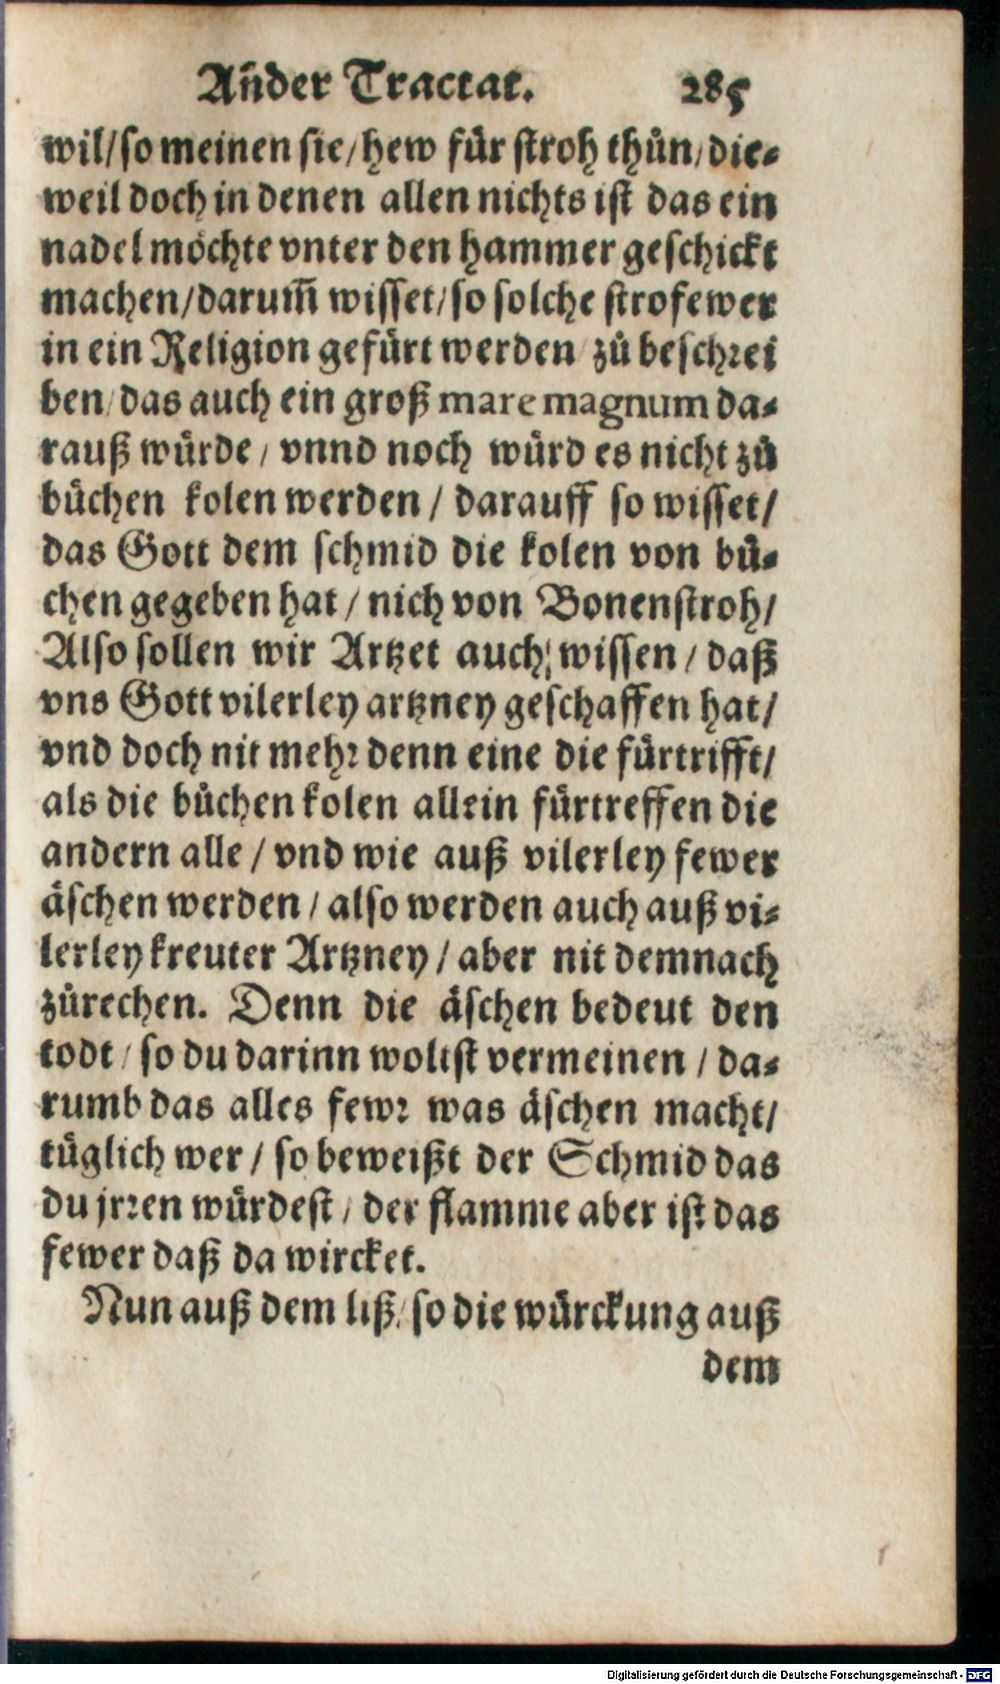 Añder Tractat. 285
wil/so meinen sie/hew für stroh thůn/die⸗
weil doch in denen allen nichts ist das ein
nadel möchte vnter den hammer geschickt
machen/darum̃ wisset/so solche strofewer
in ein Religion gefürt werden zů beschrei
ben/das auch ein groß mare magnum da⸗
rauß würde/vnnd noch würd es nicht zů
bůchen kolen werden/darauff so wisset/
das Gott dem schmid die kolen von bů⸗
chen gegeben hat/nich von Bonenstroh/
Also sollen wir Artzet auch/wissen/daß
vns Gott vilerley artzney geschaffen hat/
vnd doch nit mehr denn eine die fürtrifft/
als die bůchen kolen allein fürtreffen die
andern alle/vnd wie auß vilerley fewer
äschen werden/also werden auch auß vi⸗
lerley kreuter Artzney/aber nit demnach
zůrechen. Denn die äschen bedeut den
todt/so du darinn woltst vermeinen/da⸗
rumb das alles fewr was äschen macht/
tüglich wer/so beweißt der Schmid das
du jrren würdest/der flamme aber ist das
fewer daß da wircket.
Nun auß dem liß/so die würckung auß
dem
Digitalisierung gefördert durch die Deutsche Forschungsgemeinschaft - DFG